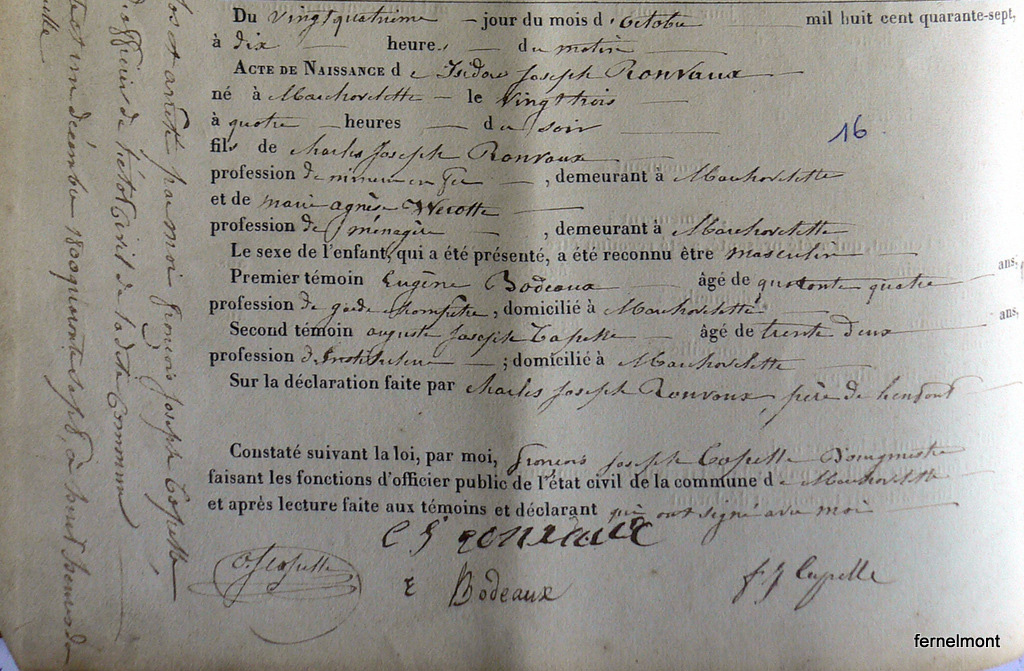 Du vingtquatrième jour du mois d'octobre mil huit cent quarante-sept,
à dix heures du matin
ACTE DE NAISSANCE de Isidore Joseph Ronvaux
né à Marchovelette le vingt trois
à quatre heures du soir
16
fils de Charles Joseph Ronvaux
profession de mineur en fer, demeurant à Marchovelette
et de marie agnèse
profession ménagère, demeurant à Marchovelette
Le sexe de l'enfant, qui a été présenté, a été reconnu être masculin
Premier témoin Eugène Bodeaux âgé de quarante quatre ans,
profession de garde champêtre, domicilié à Marchovelette
Second témoin auguste Joseph Capelle âgé de trente deux ans,
profession d'instituteur ; domicilié à Marchovelette
Sur la déclaration faite par Charles Joseph Ronvaux, père de
Constaté suivant la loi, par moi, françois Joseph Capelle Bourgmestre
faisant les fonctions d'officier public de l'état civil de la commune de Marchovelette
et après lecture faite aux témoins et déclarant qui ont signé avec moi
C J ronvaux
E Bodeaux
f J Capelle
clos et arrêté par moi françois Joseph Capelle
officier de l'état civil de la dite Commune
décembre 1800 quarante sept, à
fernelmont